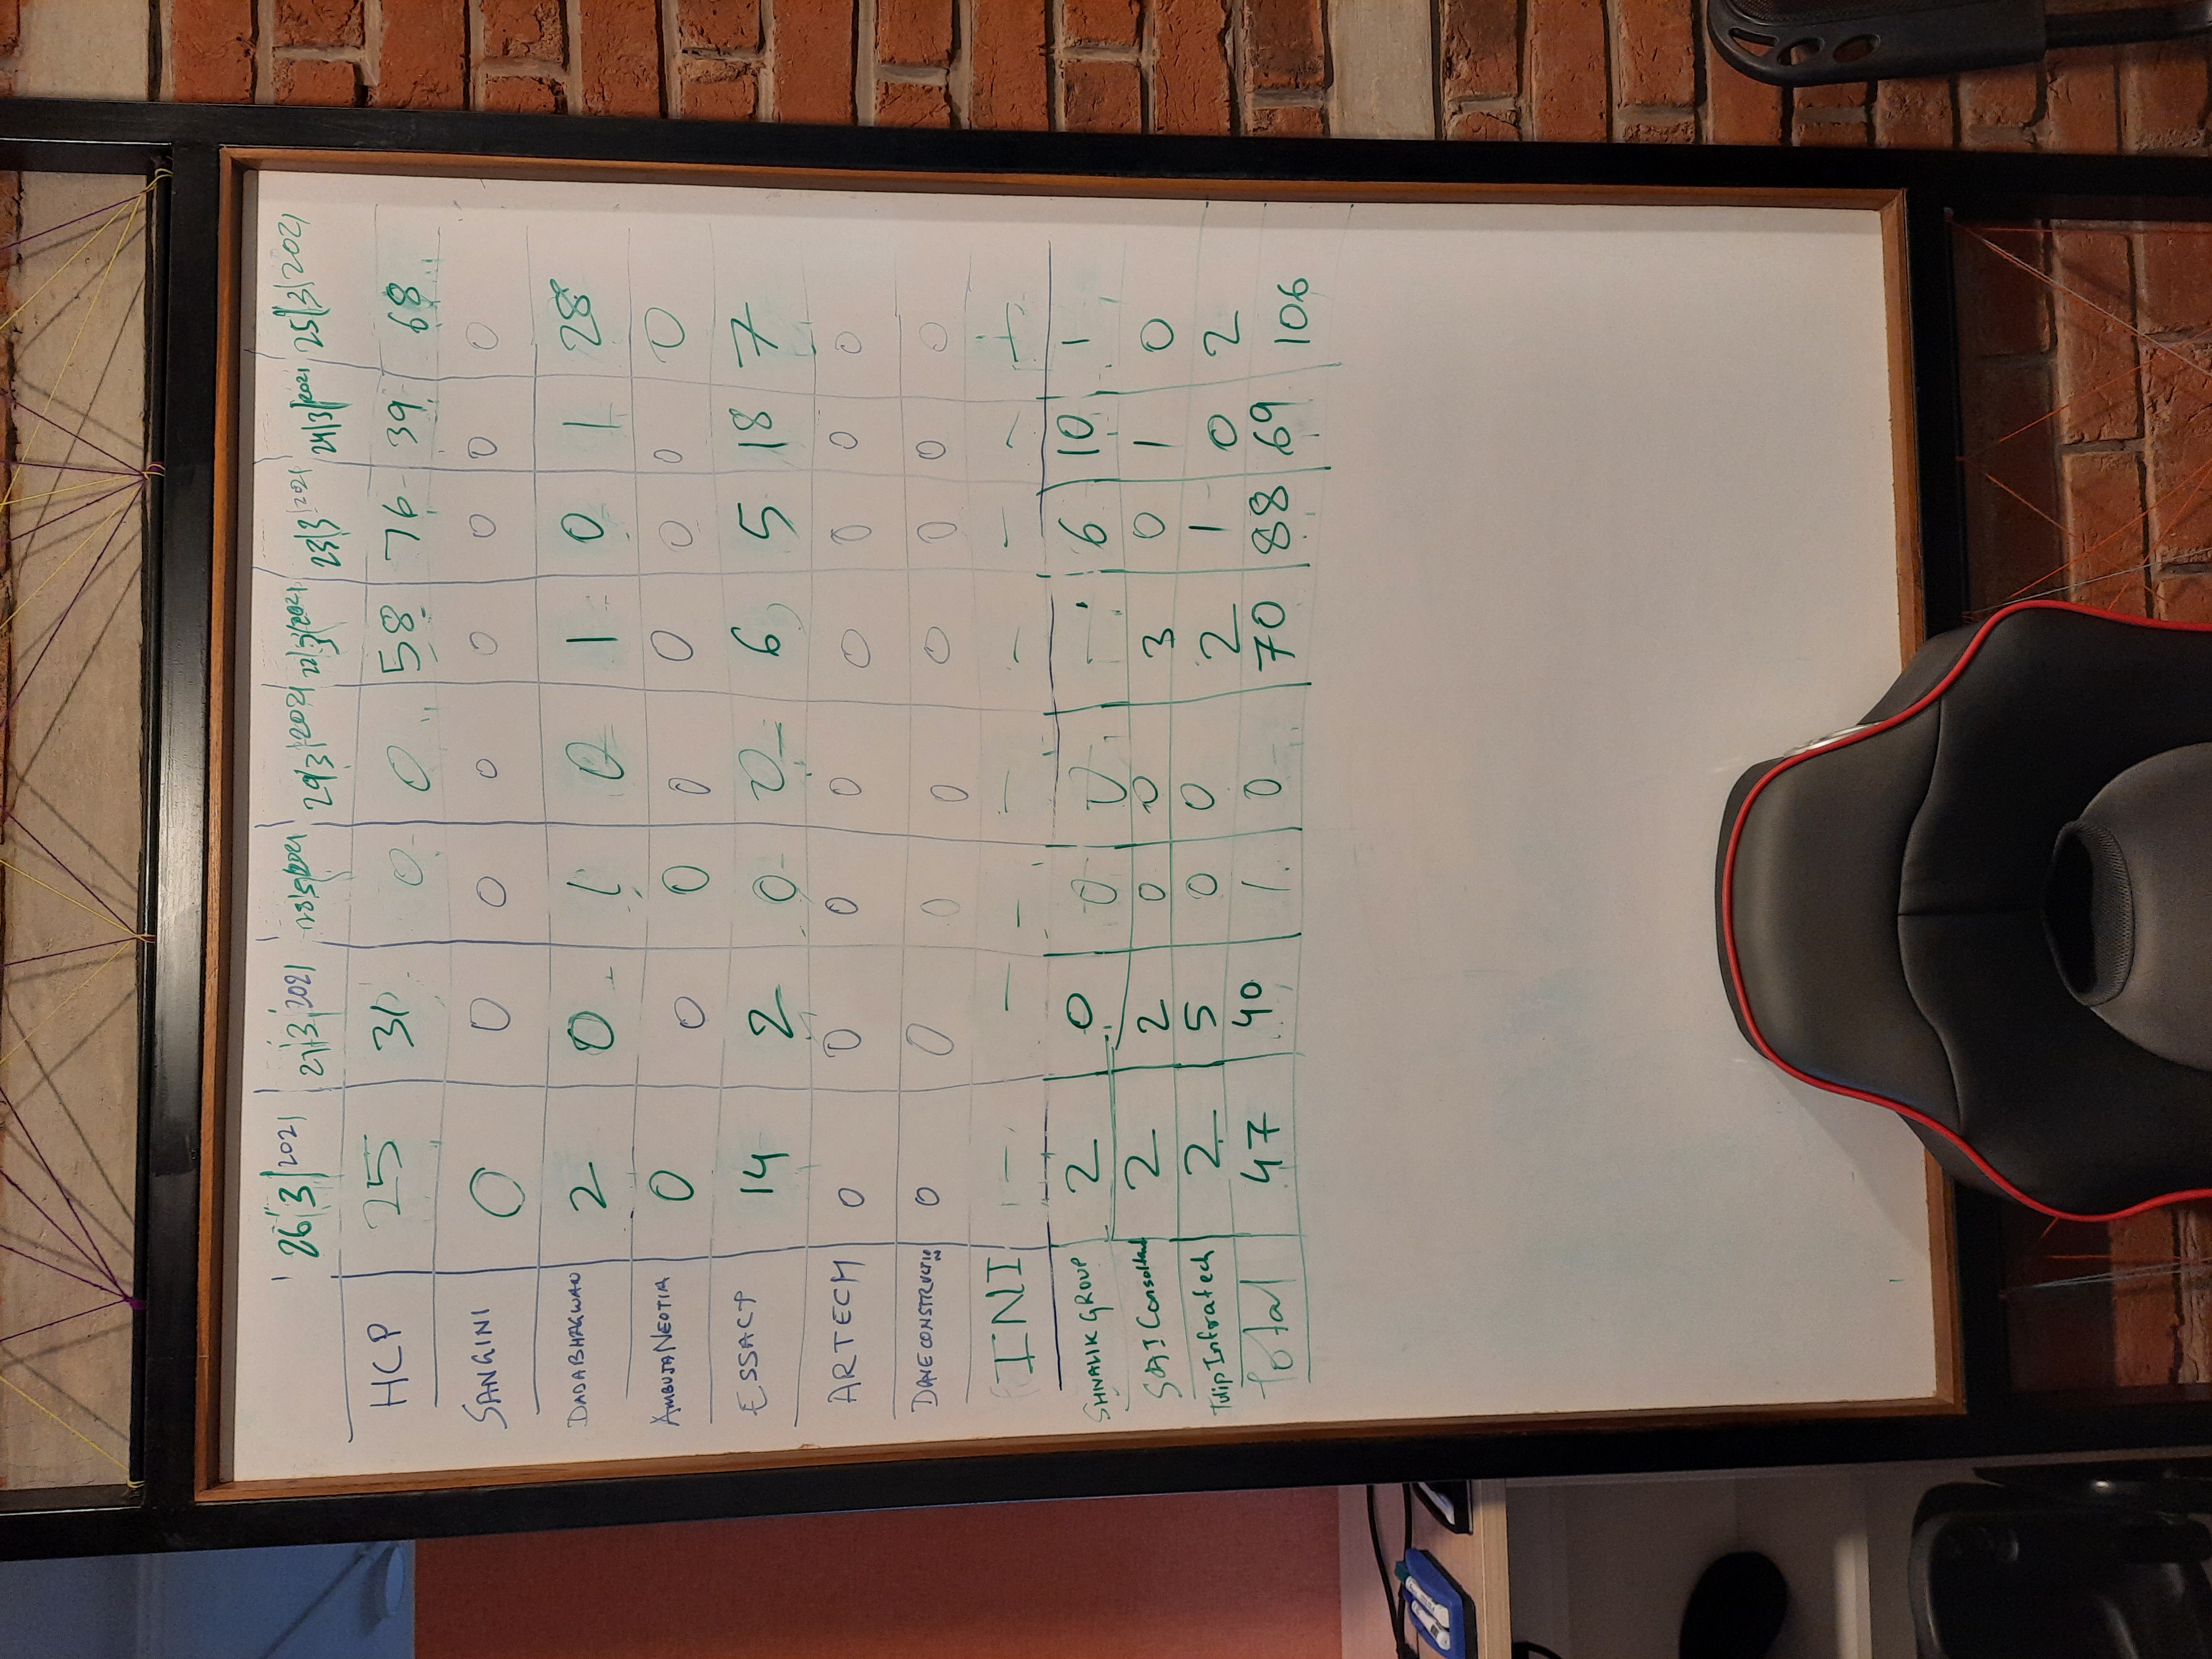 26/3/2021 27/3/2021 28/3/2021 29/3/2021 22/3/2021 23/3/2021 24/3/2021 25/3/2021
HCP 25 31 0 0 58 76 39 68
SANGINI 0 0 0 0 0 0 0 0
DADABHAGWAN 2 0 1 0 1 0 1 28
AMBUJA NEOTIA 0 0 0 0 0 0 0 0
ESSACP 14 2 0 0 6 5 18 7
ARTECH 0 0 0 0 0 0 0 0
DAVE CONSTRUCTION 0 0 0 0 0 0 0 0
INI — — — — — — — —
SHIVALIK GROUP 2 0 0 0 — 6 10 1
Consoltant 2 2 0 0 3 0 1 0
Tulip Infratech 2 5 0 0 2 1 0 2
Total 47 40 1 0 70 88 69 106